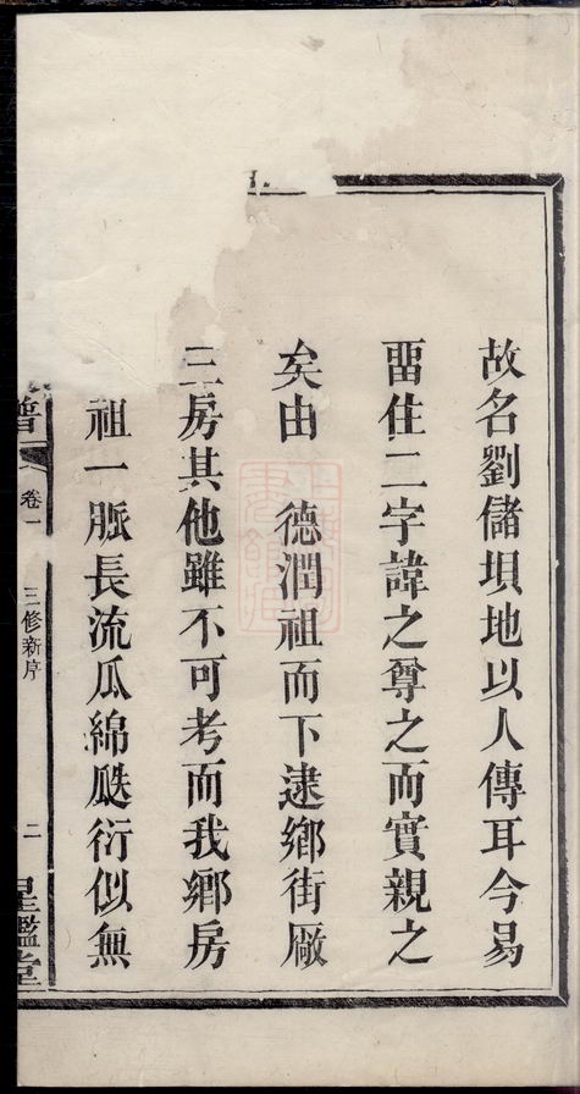 故名劉儲垻地以人傳耳今易
畱住二字諱之尊之而實親之
矣由　德潤祖而下逮鄉街厰
三房其他雖不可考而我鄉房
祖一脈長流瓜綿瓞衍似無
譜
卷一
三修新序
二
星鑑堂